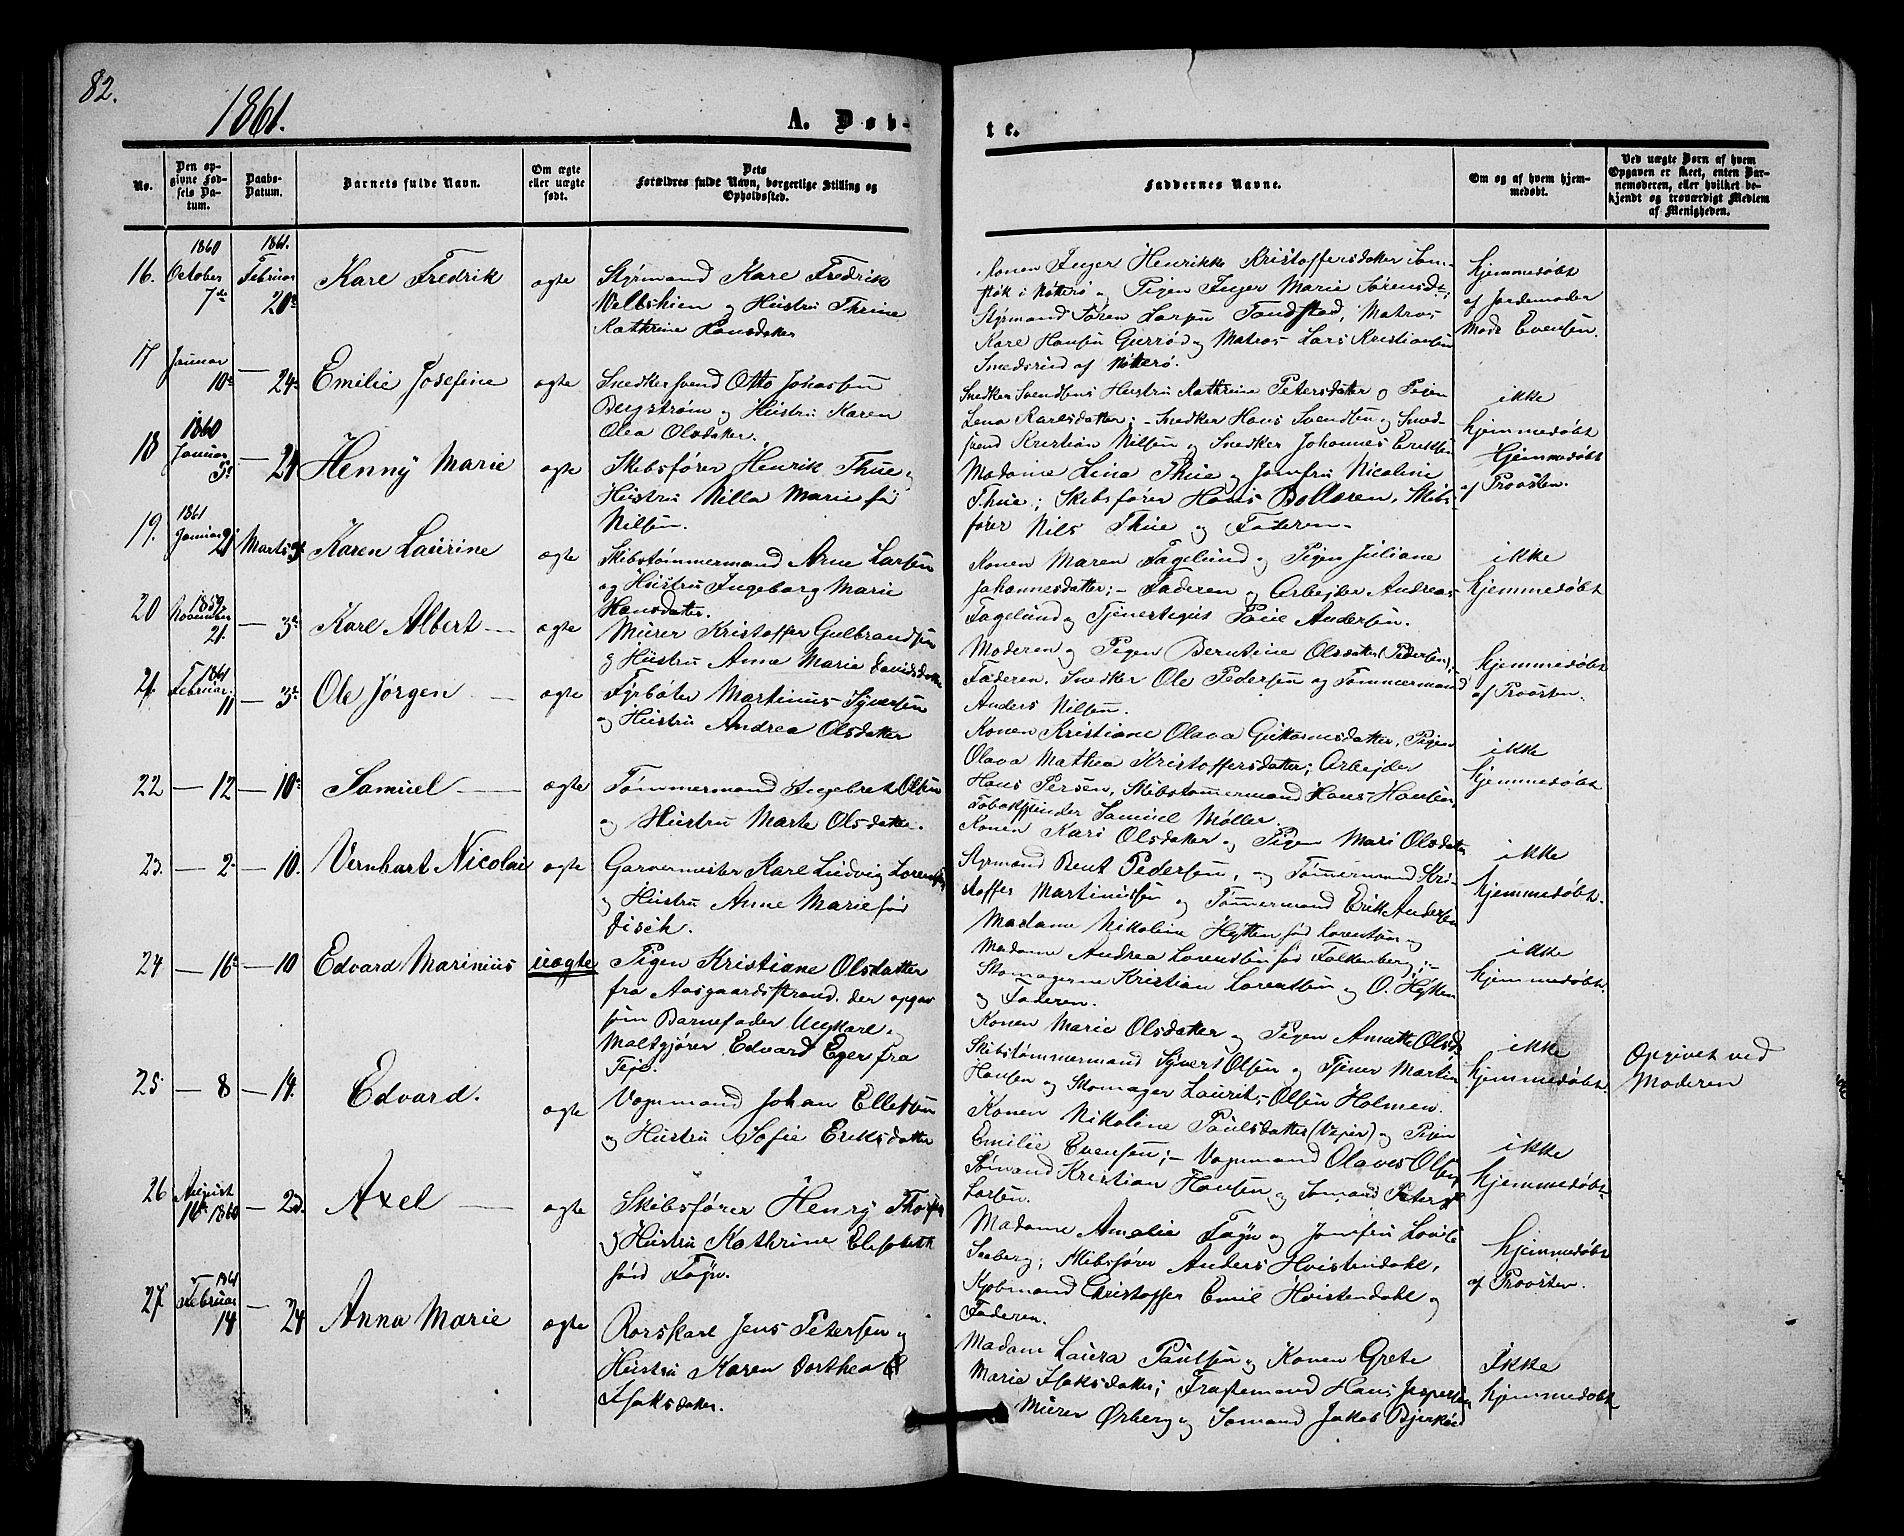 82.
1861.
A. Døb-
te.
No.
Den op-
givne Fød-
sels Da-
tum.
Daabs-
Datum.
Barnets fulde Navn.
Om ægte
eller uægte
født.
Dets
Forældres fulde Navn, borgerlige Stilling og
Opholdssted.
Faddernes Navne.
Om og af hvem hjem-
medøbt.
Ved uægte Børn af hvem
Opgaven er skeet, enten Bar-
nemoderen, eller hvilket be-
kjendt og troværdigt Medlem
af Menigheden.
16.
1860
October
7de
1861.
Februar
20de
Karl Fredrik
ægte
Styrmand Karl Fredrik
og Hustru Thrine
Kathrine Hansdatter
Konen Inger Henrikke Kristoffersdatter
i Nøtterø og Pigen Inger Marie Sørensdt;
Styrmand Søren Larsen Tandstad, Matros
Karl Hansen Gurrød og Matros Lars Kristiansen
Smedsrud af Nøtterø.
hjemmedøbt
af Jordemoder
Mads Evensen.
17
Januar
10de
— 24.
Emilie Josefine
ægte
Snedkersvend Otto Johassen
Bergstrøm og Hustru Karen
Olea Olsdatter.
Snedker Svendsens Hustru Kathrine Petersdatter og Pigen
Lena Karlsdatter; - Snedker Hans Svendsen og Sned-
svend Kristian Nilsen og Snedker Johannes Eriksen
ikke
hjemmedøbt
18
1860
Januar
5.
— 28
Henny Marie
ægte
Skibsfører Henrik Thue og
Hustru Nilla Marie fø
Nilsen.
Madame Lina Thue og Jomfru Nicoline
Thue; Skibsfører Hans Bollæren, Skibs-
fører Nils Thue og Faderen.
Hjemmedøbt
af Provsten.
19.
1861
Januar
21
Marts 3.
Karen Laurine
ægte
Skibstømmermand Arne Larsen
og Hustru Ingeborg Marie
Hansdatter.
Konen Maren Fagelund og Pigen Juliane
Johannesdatter; - Faderen og Arbejder Andreas
Fagelund og Tjenestegut Paul Andersen.
ikke
hjemmedøbt
20
1859
November
21.
— 3.
Karl Albert —
ægte
Murer Kristoffer Gulbrandsen
og Hustru Anne Marie Davidsdatter
Moderen og Pigen Berntine Olsdatter (Pedersen);
Faderen. Snedker Ole Pedersen og Tømmermand
Anders Nilsen.
hjemmedøbt
af Provsten.
21.
1861
Februar
11
— 3.
Ole Jørgen —
ægte
Fyrbøter Martinus Syversen
og Hustru Andrea Olsdatter
Konen Kristiane Olava Guttormsdatter, Pigen
Olava Mathea Kristoffersdatter; Arbejder
Hans Persen, Skibstømmermand Hans Hansen
Tobakspinder Samuel Møller.
ikke
hjemmedøbt
22
— 12
— 10.
Samuel —
ægte
Tømmermand Ingebret Olsen
og Hustru Marte Olsdatter.
Konen Kari Olsdatter og Pigen Mari Olsdatter
Styrmand Bent Pedersen, og Tømmermand Kri-
stoffer Martinussen og Tømmermand Erik Andersen
ikke
hjemmedøbt.
23.
— 2.
— 10.
Vernhart Nicolai
ægte
Garvermester Karl Ludvig Lorentsen
og Hustru Anne Marie fød
Disch.
Madame Nikoline Hytten fød Lorentsen og
Madame Andrea Lorentsen fød Falkenberg; -
Skomagerne Kristian Lorentsen og O. Hytten
og Faderen.
ikke
hjemmedøbt.
24
— 16.
— 10
Edvard Marinius
uægte
Pigen Kristiane Olsdatter
fra Aasgaardsstrand. der opgav
som Barnefader Ungkarl og
Maltgjører Edvard Eger fra
Teie.
Konen Marie Olsdatter og Pigen Annette Olsd
Skibstømmermand Syvert Olsen og Tjener Martin
Hansen og Skomager Laurits Olsen Holmen.
ikke
hjemmedøbt.
Opgivet ved
Moderen
25
— 8
— 14.
Edvard.
ægte
Vognmand Johan Ellefsen
og Hustru Sofie Eriksdatter
Konen Nikoline Paulsdatter og Pigen
Emilie Evensen; - Vognmand Olaves Olsen
Sømand Kristian Hansen og Sømand Peter
Larsen.
ikke
hjemmedøbt
26
August
16. 1860
— 23.
Axel —
ægte
Skibsfører Henry
og Hustru Kathrine Elisabeth
född Føyn.
Madame Amalie Føyn og Jomfru Lovise
Seeberg; Skibsfører Anders Hvistendahl,
Kjøbmand Christoffer Emil Hvistendahl og
Faderen.
hjemmedøbt
af Provsten.
27
1861
Februar
14
— 24
Anna Marie
ægte
Rorskarl Jens Petersen og
Hustru Karen Dorthea
Isaksdatter.
Madam Laura Paulsen og Konen Grete
Marie Isaksdatter; Fragtemand Hans Jespersen
Murer Ørberg og Sømand Jakob Bjerkød
Ikke
hjemmedøbt